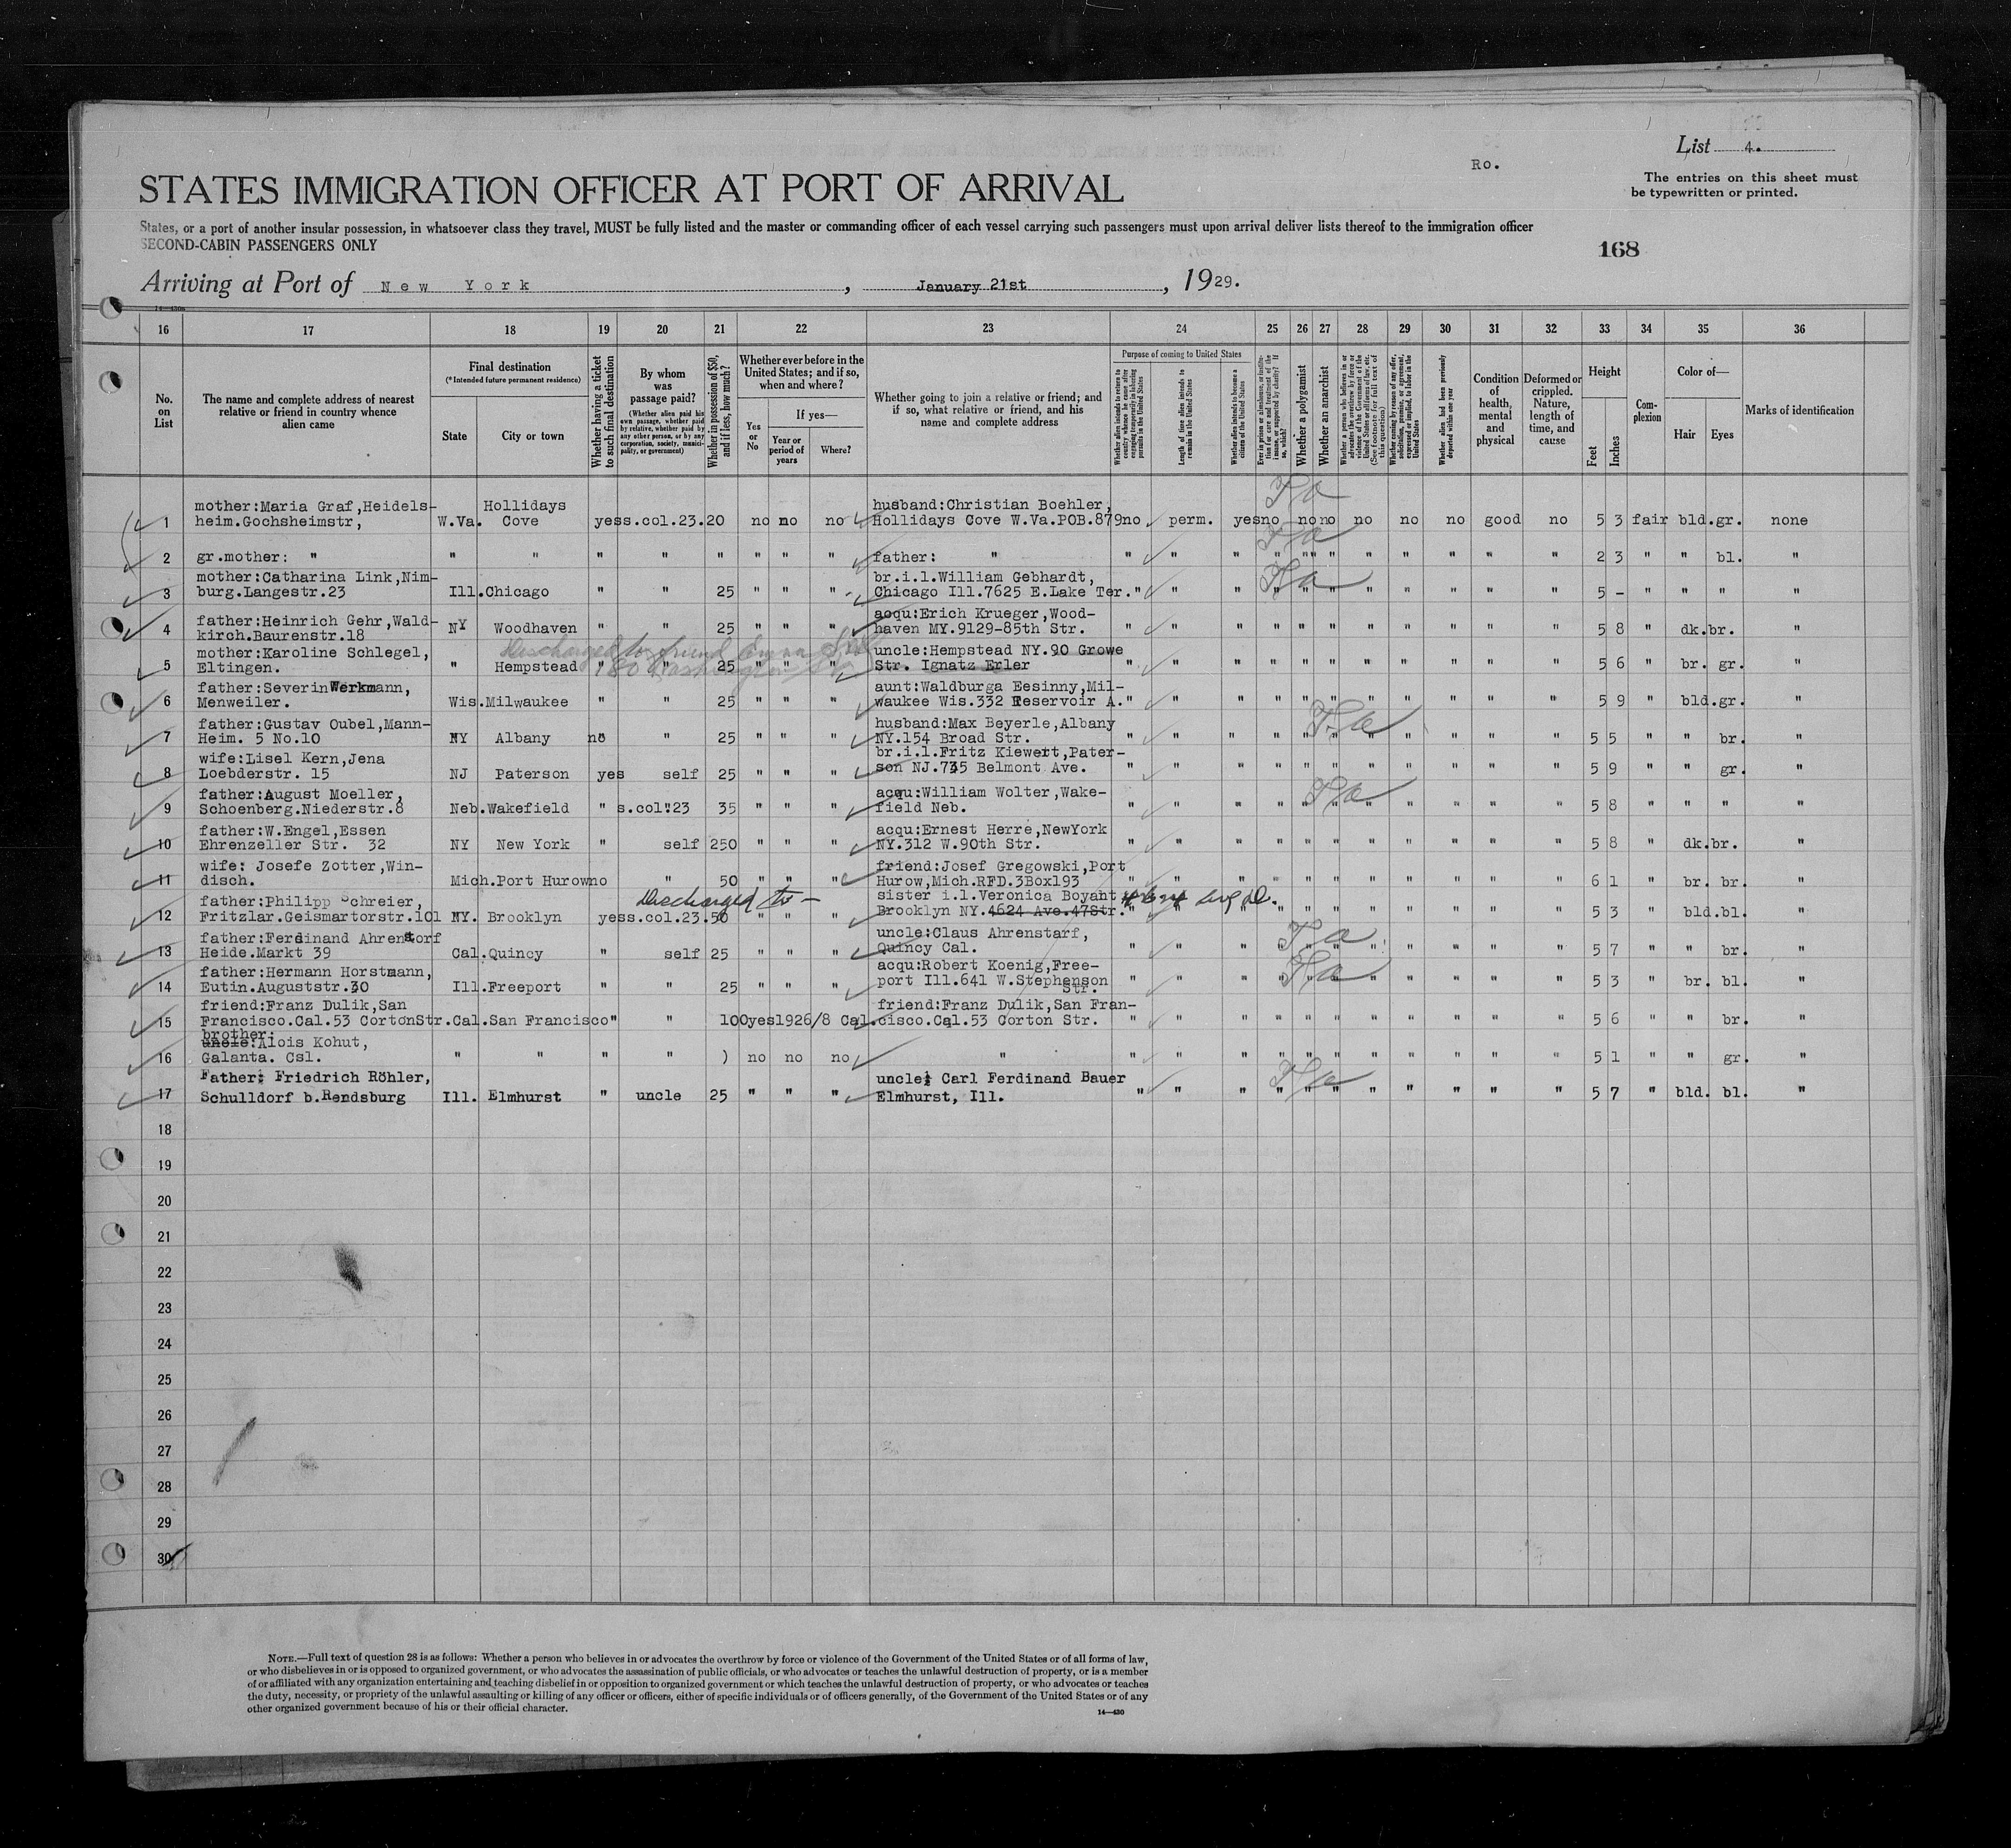 List 4.
Ro.
The entries on this sheet must
be typewritten or printed.
STATES IMMIGRATION OFFICER AT PORT OF ARRIVAL
States, or a port of another insular possession, in whatsoever class they travel, MUST be fully listed and the master or commanding officer of each vessel carrying such passengers must upon arrival deliver lists thereof to the immigration officer
SECOND-CABIN PASSENGERS ONLY
168
Arriving at Port of New York, January 21st, 1929.
16 17 18 19 20 21 22 23 24 25 26 27 28 29 30 31 32 33 34 35 36
No. on List
The name and complete address of nearest relative or friend in country whence alien came
Final destination
(*Intended future permanent residence)
State
City or town
Whether having a ticket to such final destination
By whom was passage paid?
(Whether alien paid his own passage, whether paid by relative, whether paid by any other person, or by any corporation, society, municipality, or government)
Whether in possession of $50, and if less, how much?
Whether ever before in the United States; and if so, when and where?
Yes or No
If yes—
Year or period of years
Where?
Whether going to join a relative or friend; and if so, what relative or friend, and his name and complete address
Purpose of coming to United States
Whether alien intends to return to country whence he came after engaging temporarily in laboring pursuits in the United States
Length of time alien intends to remain in the United States
Whether alien intends to become a citizen of the United States
Ever in prison or almshouse, or institution for care and treatment of the insane, or supported by charity? If so, which?
Whether a polygamist
Whether an anarchist
Whether a person who believes in or advocates the overthrow by force or violence of the Government of the United States or all forms of law, etc. (See footnote for full text of this question)
Whether coming by reason of any offer, solicitation, promise, or agreement, expressed or implied, to labor in the United States
Whether alien had been previously deported within one year
Condition of health, mental and physical
Deformed or crippled. Nature, length of time, and cause
Height
Feet
Inches
Complexion
Color of—
Hair
Eyes
Marks of identification
mother:Maria Graf,Heidels- Hollidays husband:Christian Boehler,
1 heim.Gochsheimstr, W.Va. Cove yes s.col.23. 20 no no no Hollidays Cove W.Va.POB.879 no perm. yes no no no no no no good no 5 3 fair bld. gr. none
2 gr.mother: " " " " " " " " " father: " " " " " " " " " " " " 2 3 " " bl. "
mother:Catharina Link,Nim- br.i.l.William Gebhardt,
3 burg.Langestr.23 Ill. Chicago " " 25 " " " Chicago Ill.7625 E.Lake Ter. " " " " " " " " " " " 5 - " " " "
father:Heinrich Gehr,Wald- acqu:Erich Krueger,Wood-
4 kirch.Baurenstr.18 NY Woodhaven " " 25 " " " haven MY.9129-85th Str. " " " " " " " " " " " 5 8 " dk. br. "
Discharged to friend
mother:Karoline Schlegel, uncle:Hempstead NY.90 Growe
5 Eltingen. " Hempstead " " 25 " " " Str. Ignatz Erler " " " " " " " " " " " 5 6 " br. gr. "
father:Severin Werkmann, aunt:Waldburga Eesinny,Mil-
6 Menweiler. Wis. Milwaukee " " 25 " " " waukee Wis.332 Reservoir A. " " " " " " " " " " " 5 9 " bld. gr. "
father:Gustav Oubel,Mann- husband:Max Beyerle,Albany
7 Heim. 5 No.10 NY Albany no " 25 " " " NY.154 Broad Str. " " " " " " " " " " " 5 5 " " br. "
wife:Lisel Kern,Jena br.i.l.Fritz Kiewert,Pater-
8 Loebderstr. 15 NJ Paterson yes self 25 " " " son NJ.735 Belmont Ave. " " " " " " " " " " " 5 9 " " gr. "
father:August Moeller, acqu:William Wolter,Wake-
9 Schoenberg.Niederstr.8 Neb. Wakefield " s.col.23 35 " " " field Neb. " " " " " " " " " " " 5 8 " " " "
father:W.Engel,Essen acqu:Ernest Herre,NewYork
10 Ehrenzeller Str. 32 NY New York " self 250 " " " NY.312 W.90th Str. " " " " " " " " " " " 5 8 " dk. br. "
wife: Josefe Zotter,Win- friend:Josef Gregowski,Port
11 disch. Mich. Port Hurow no " 50 " " " Hurow,Mich.RFD.3Box193 " " " " " " " " " " " 6 1 " br. br. "
Discharged to —
father:Philipp Schreier, sister i.l.Veronica Boyant
12 Fritzlar.Geismartorstr.101 NY. Brooklyn yes s.col.23. 50 " " " Brooklyn NY.4624 Ave.47Str. " " " " " " " " " " " 5 3 " bld. bl. "
father:Ferdinand Ahrenstorf uncle:Claus Ahrenstarf,
13 Heide.Markt 39 Cal. Quincy " self 25 " " " Quincy Cal. " " " " " " " " " " " 5 7 " " br. "
father:Hermann Horstmann, acqu:Robert Koenig,Free-
14 Eutin.Auguststr.30 Ill. Freeport " " 25 " " " port Ill.641 W.Stephenson Str. " " " " " " " " " " " 5 3 " br. bl. "
friend:Franz Dulik,San friend:Franz Dulik,San Fran-
15 Francisco.Cal.53 CortonStr. Cal. San Francisco " " 100 yes 1926/8 Cal. cisco.Cal.53 Corton Str. " " " " " " " " " " " 5 6 " " br. "
brother:
uncle:Alois Kohut,
16 Galanta. Csl. " " " " ) no no no " " " " " " " " " " " " 5 1 " " gr. "
Father: Friedrich Röhler, uncle: Carl Ferdinand Bauer
17 Schulldorf b.Rendsburg Ill. Elmhurst " uncle 25 " " " Elmhurst, Ill. " " " " " " " " " " " 5 7 " bld. bl. "
18
19
20
21
22
23
24
25
26
27
28
29
30
NOTE.—Full text of question 28 is as follows: Whether a person who believes in or advocates the overthrow by force or violence of the Government of the United States or of all forms of law,
or who disbelieves in or is opposed to organized government, or who advocates the assassination of public officials, or who advocates or teaches the unlawful destruction of property, or is a member
of or affiliated with any organization entertaining and teaching disbelief in or opposition to organized government or which teaches the unlawful destruction of property, or who advocates or teaches
the duty, necessity, or propriety of the unlawful assaulting or killing of any officer or officers, either of specific individuals or of officers generally, of the Government of the United States or of any
other organized government because of his or their official character.
14—430